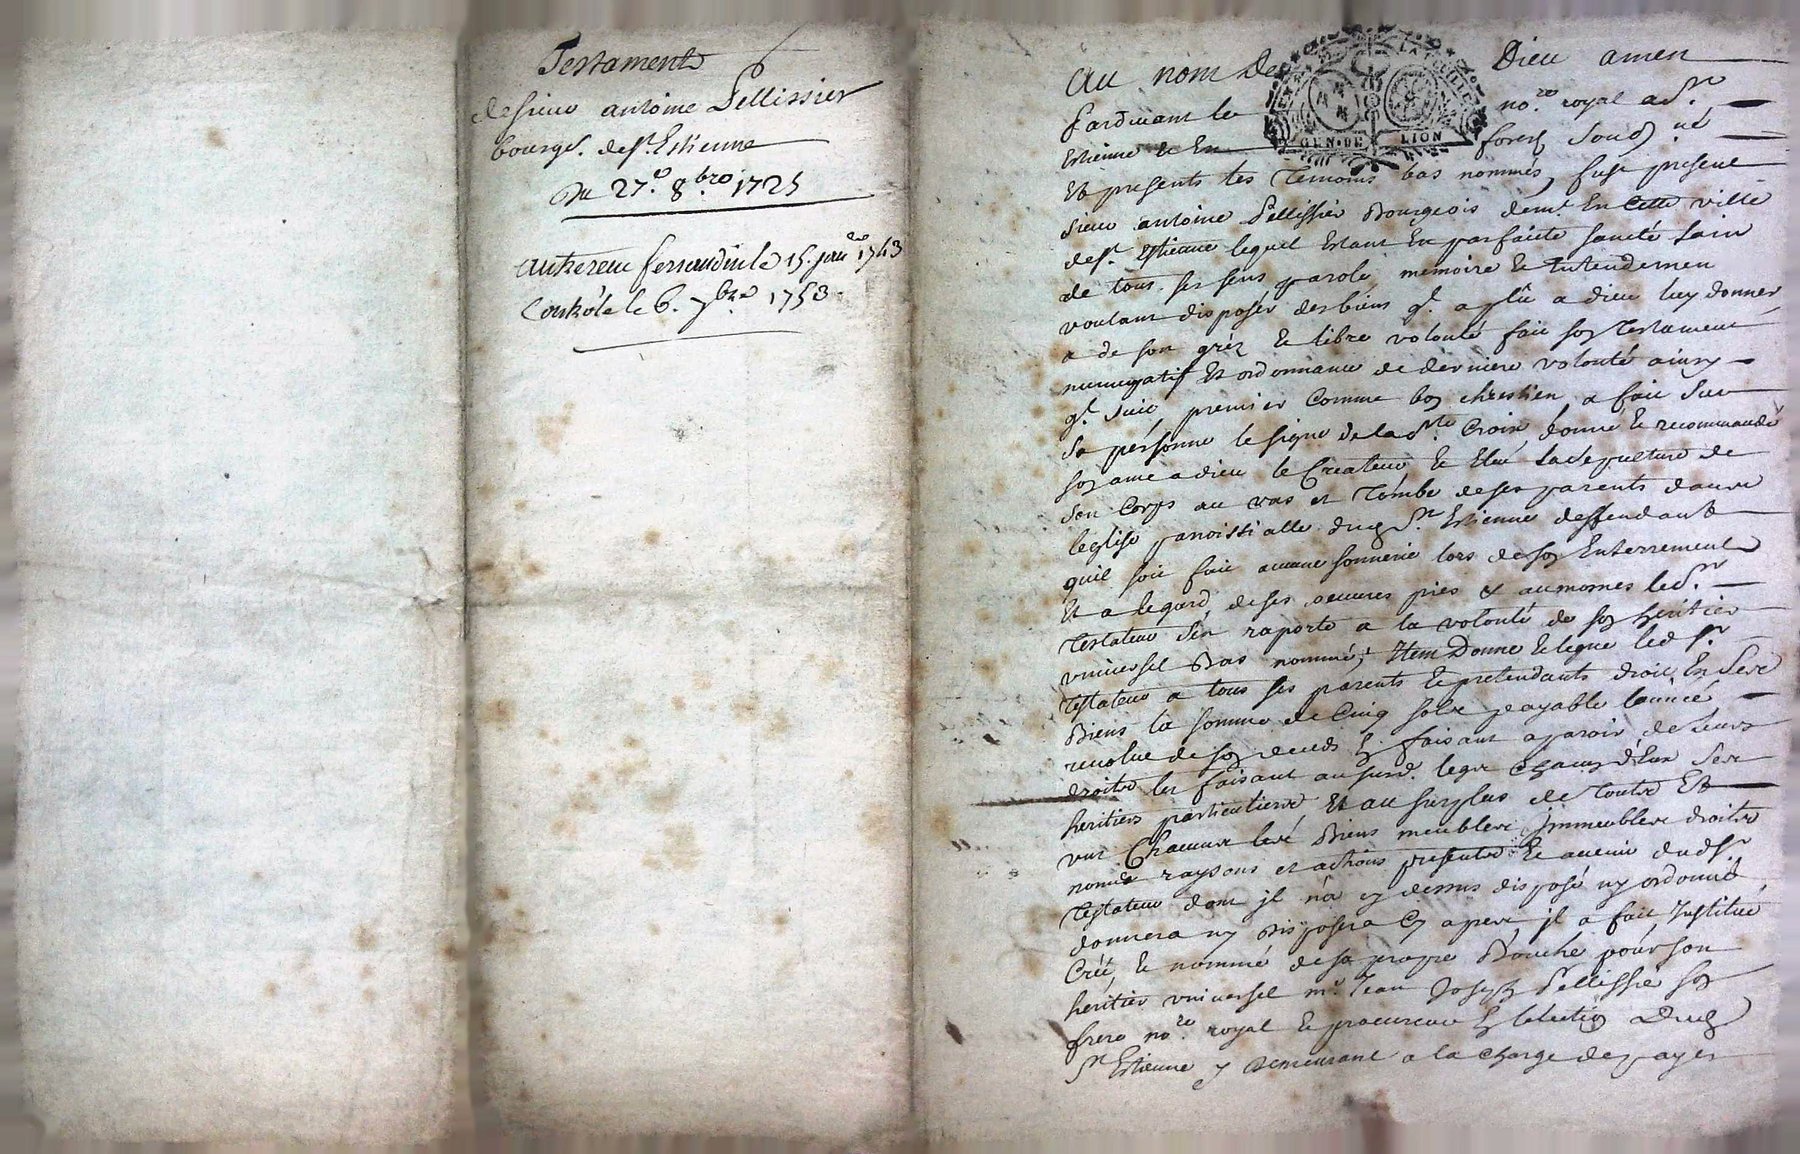 Testament
de sieur antoine Pellissier
bourgs. de st. Estienne
Du 27.e 8bre 1725
le 15. janre 1743
Contrôlé le 6. 7bre 1753.
Au nom de Dieu amen
Pardevant le nore. royal a St.
Estienne et En forest soussné
Et presents les temoins bas nommés, fust present
sieur antoine Pellissier Bourgeois demt. En Cette ville
de st. Estienne lequel Estant En parfaite santé sain
de tous ses sens parole memoire et Entendemen
voulant disposér des biens ql. a plû a dieu luy donner
a de son gréz et libre volonté fait son Testament
nuncupatif Et ordonnance de derniere volonté ainsy
ql. suit, premier Comme bon chrestien a fait sur
sa personne le signe de la Ste. Croix donné et recommandé
son ame a dieu le Createur et Eleu la sepulture de
son Corps au vas et Tombe de ses parents dans
leglise parroissialle dud St. Estienne deffendant
quil soit fait aucune sonnerie lors de son Enterrement
Et a legard de ses oeuvres pies et aumones led sr.
Testateur s'en raporte a la volonté de son heritier
universel Bas nommé, Item Donne et legue led sr.
Testateur a tous ses parents et pretendants droit En ses
Biens la somme de Cinq sols payable lannée
revolue de son deceds En faisant aparoir de leurs
droits les faisant au surd. legs Chacun d'eux ses
heritiers particuliers, Et au surplus de touts Et
uns Chacuns les Biens meubles Immeubles droits
noms raysons et actions presents et avenir dud sr.
Testateur dont jl n'a cy dessus disposé ny ordonné
donnera ny disposera Cy apres jl a fait Institué
Créé et nommé de sa propre Bouche pour son
heritier universel mr. Jean Joseph Pellissié son
frere nore. royal et procureur En lelection Dud
St. Estienne y Demeurant a la charge de payer
GEN. DE LION